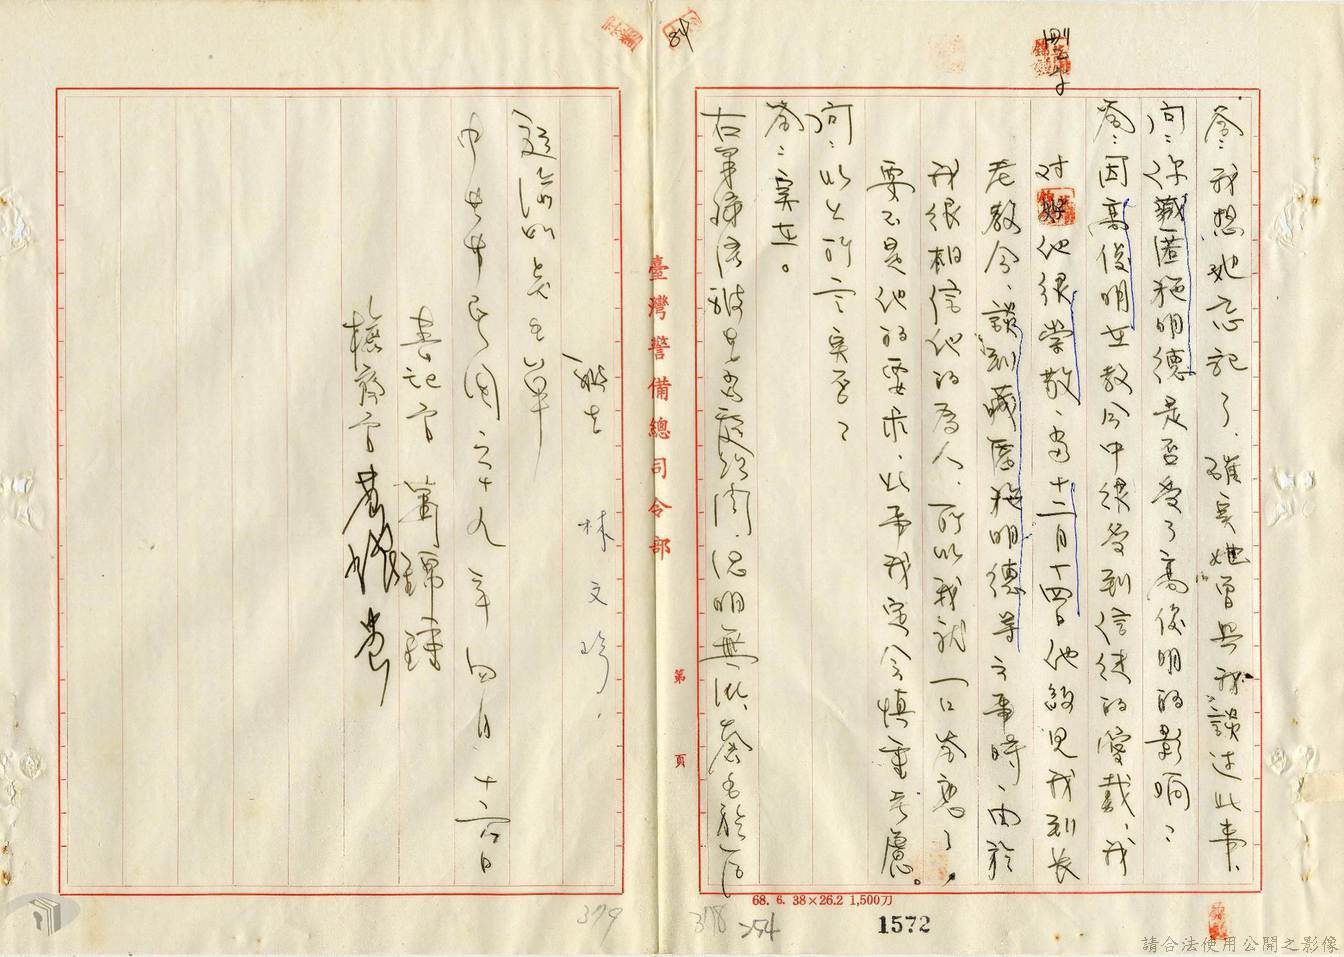 答：我想她忘記了，確實她曾與我談过此事。
問：你藏匿施明德是否受了高俊明的影响？
答：因高俊明在教会中很受到信徒的愛戴，我
对他很崇敬，当十二月十四日他約見我到長
老教会，談到藏匿施明德等之事時，由於
我很相信他的為人，所以我就一口答應了，
要不是他的要求，此事我定会慎重考慮。
問：以上所言实否？
答：实在。
右筆錄
林文珍
中華民國六十九年四月十六日
書記官
檢察官
臺灣警備總司令部
第 頁
84
68. 6. 38×26.2 1,500刀
1572
378
254
379
請合法使用公開之影像